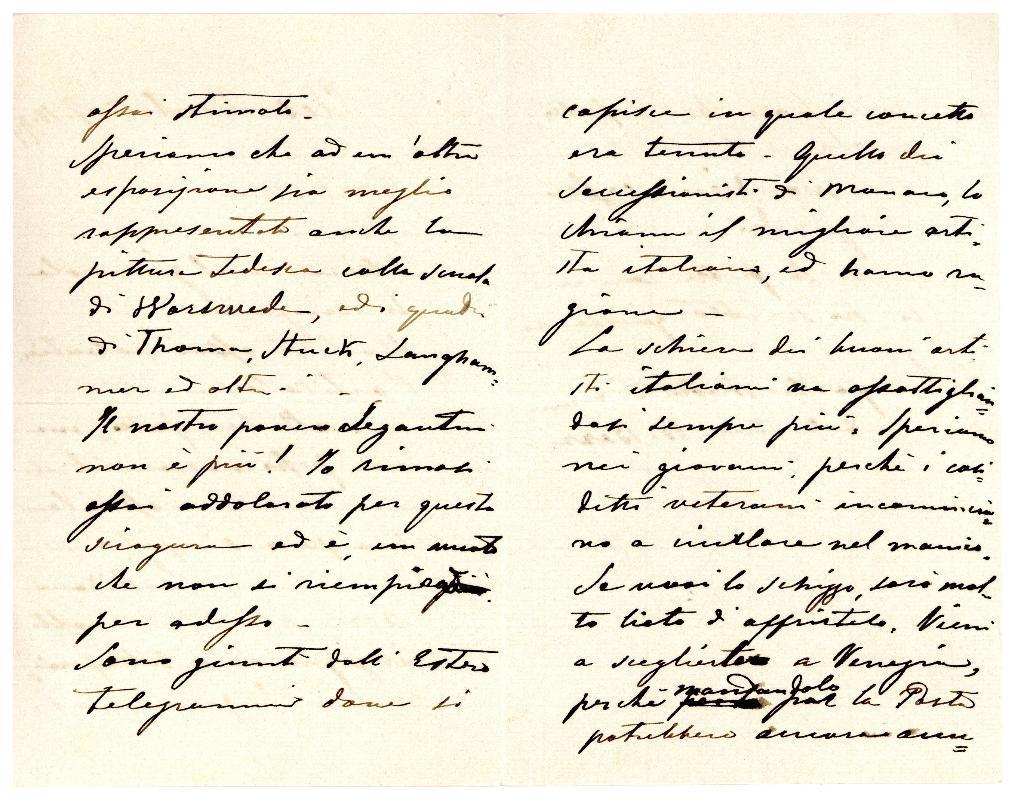 assai stimato.
Speriamo che ad un'altra
esposizione sia meglio
rappresentata anche la
pittura tedesca colla scuola
di Worswede, ed i quadri
di Thoma, Stuck, Langham=
mer ed altri. -
Il nostro povero Segantini
non è più! Io rimasi
assai addolorato per questa
sciagura ed è un vuoto
che non si riempie
per adesso -
Sono giunti dall'Estero
telegrammi dove si
capisce in quale concetto
era tenuto - Quello dei
Secessionisti di Monaco, lo
chiama il migliore arti=
sta italiano, ed hanno ra=
gione -
La schiera dei buoni arti=
sti italiani va assottiglian=
dosi sempre più. Speriamo
nei giovani, perchè i così
detti veterani incomincia=
no a crollare nel manico.
Se vuoi lo schizzo, sarò mol=
to lieto d'offrirtelo. Vieni
a sceglierlo a Venezia,
perchè mandandolo per la Posta
potrebbero ancora